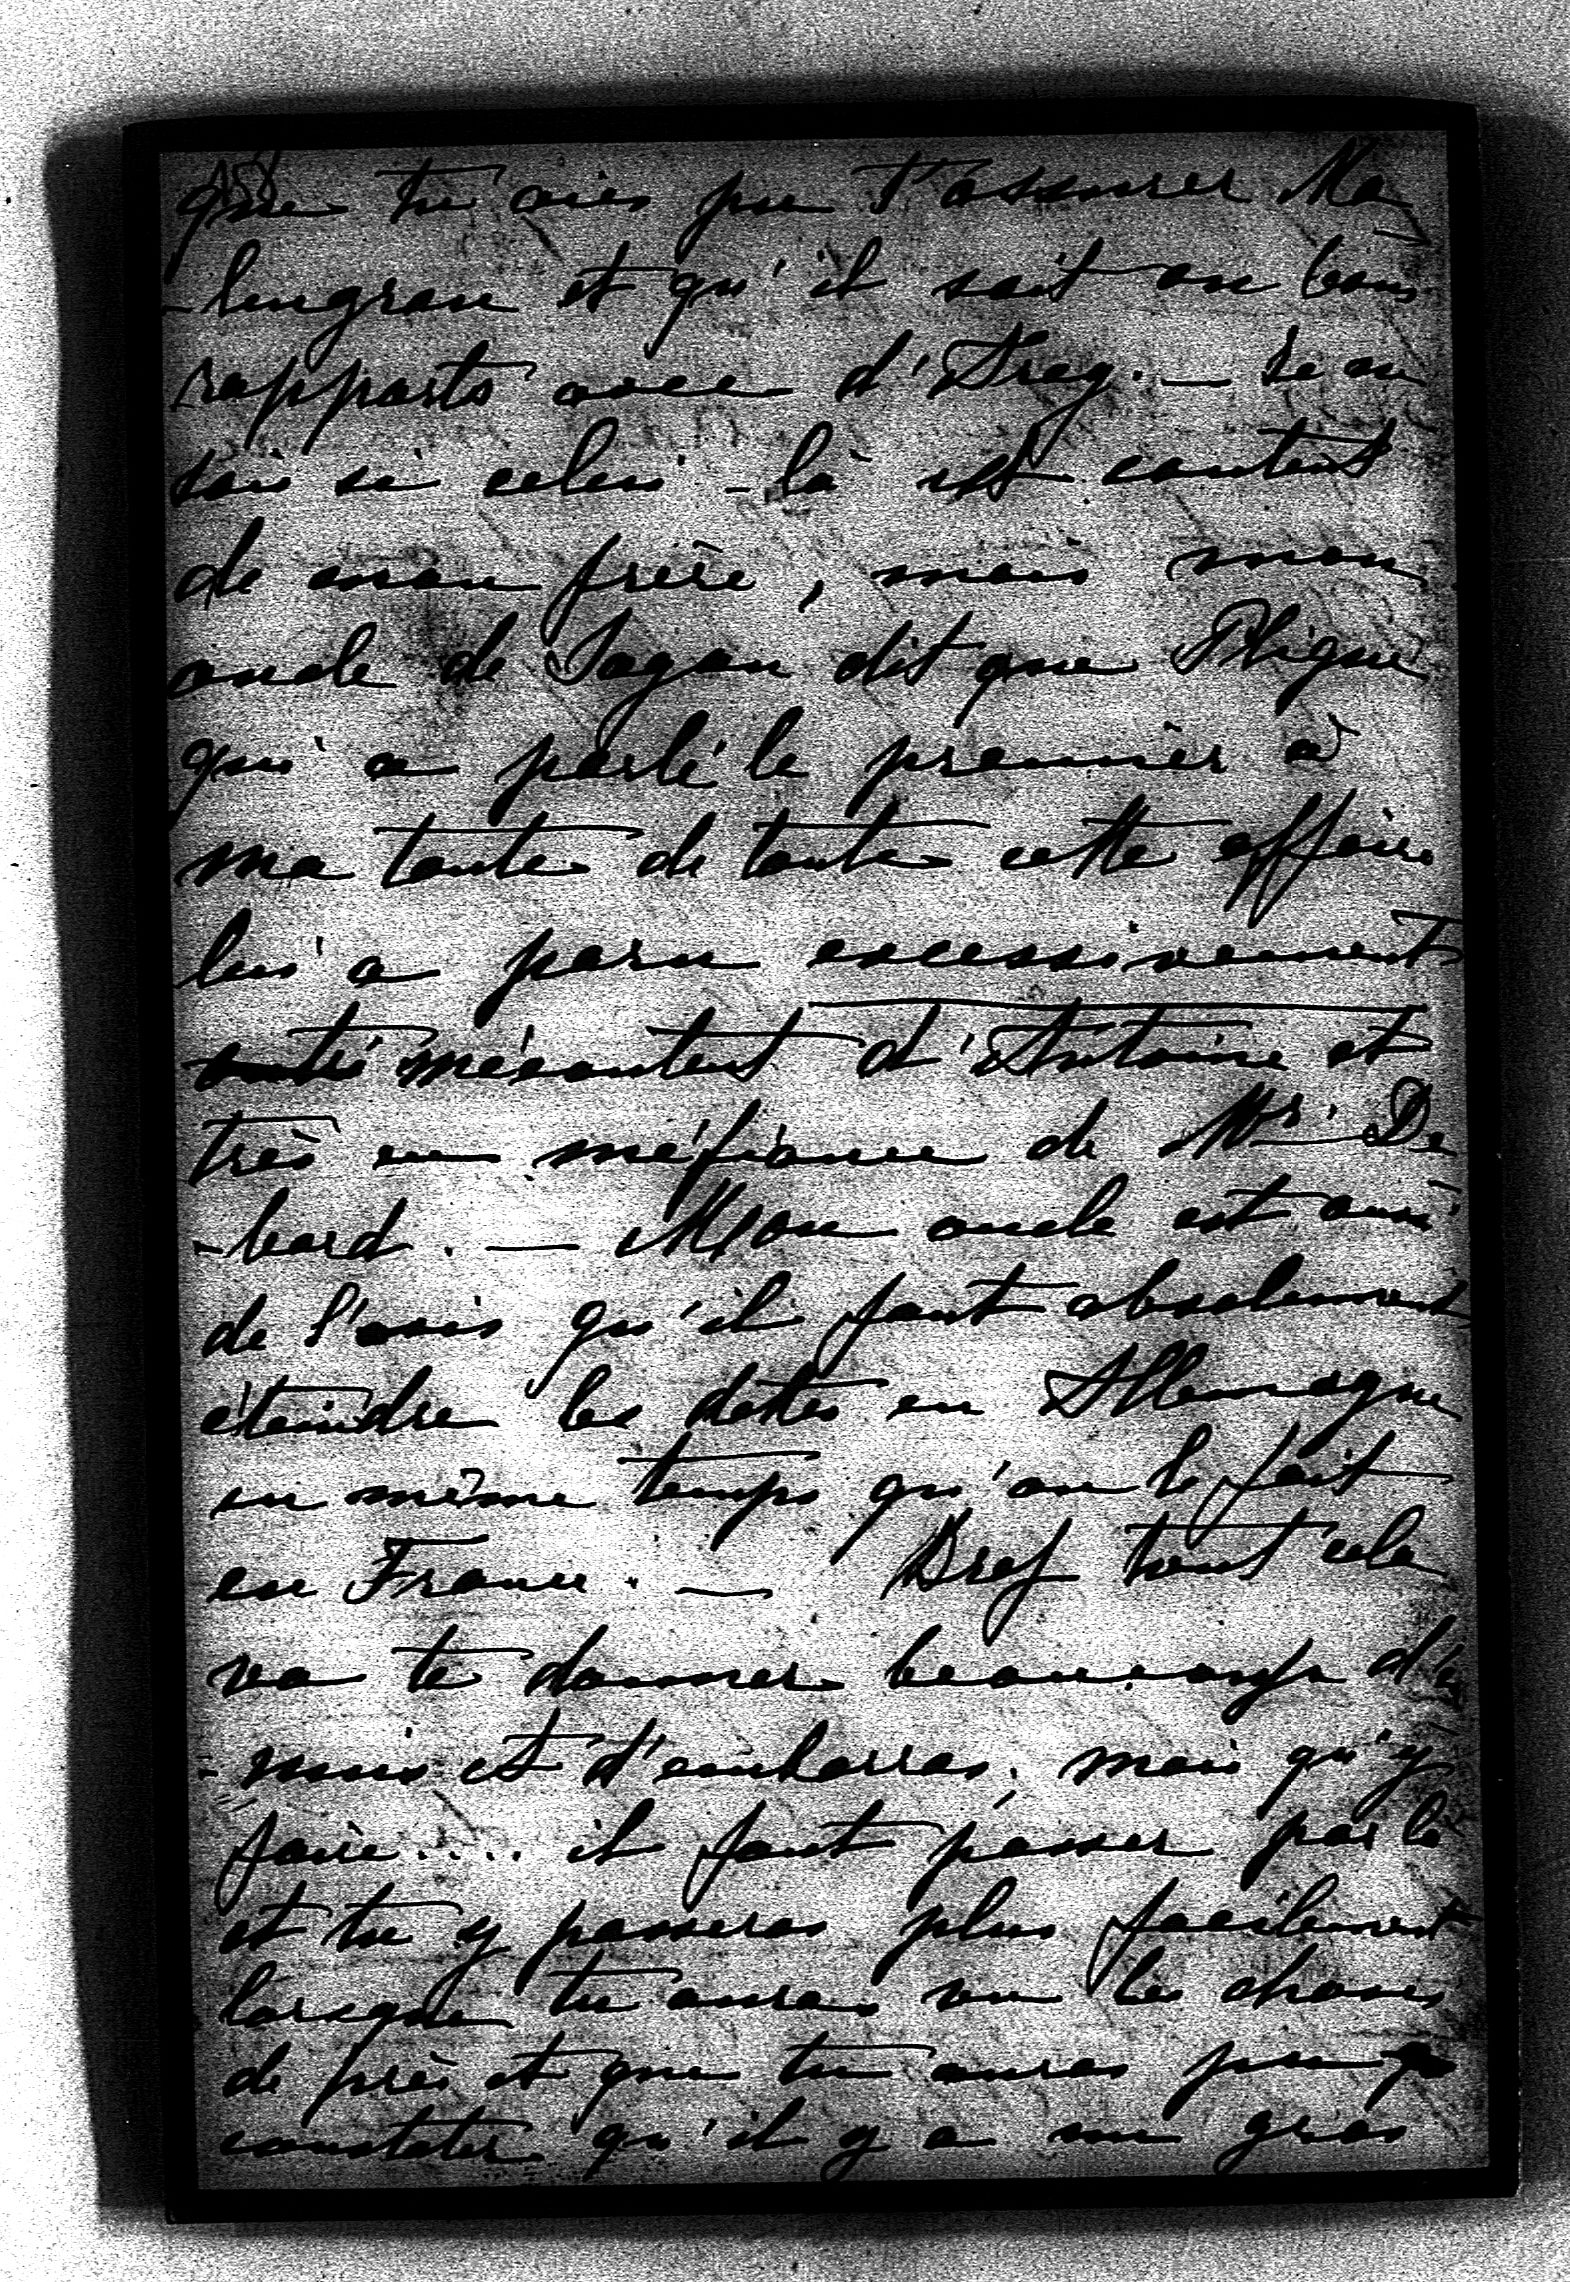 158
que tu aies pu t'assurer Ma
-lengrau et qu'il soit en bons
rapports avec d'Freg. — Je ne
sais si celui-là est content
de mon frère, mais mon
oncle de Sagan dit que
qui a parlé le premier à
ma tante de toute cette affaire
lui a paru excessivement
mécontent d'Antoine et
très en méfiance de Mr. De
-bord. — Mon oncle est aussi
de l'avis qu'il faut absolument
éteindre les dettes en Allemagne
en même temps qu'on le fait
en France. — Bref tout cela
va te donner beaucoup d'en
-nuis et d'embarras. mais qu'y
faire..... il faut passer par là
et tu y passeras plus facilement
lorsque tu auras vu les choses
de près et que tu auras pu
constater qu'il y a un gros